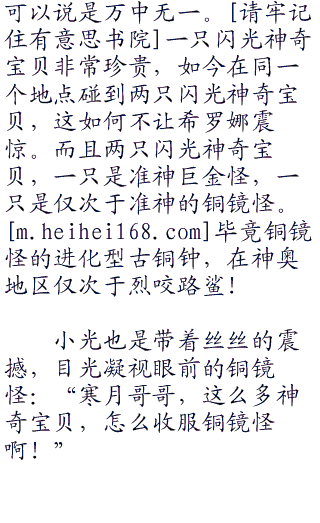 可以说是万中无一。[请牢记
住有意思书院]一只闪光神奇
宝贝非常珍贵，如今在同一
个地点碰到两只闪光神奇宝
贝，这如何不让希罗娜震
惊。而且两只闪光神奇宝
贝，一只是准神巨金怪，一
只是仅次于准神的铜镜怪。
[m.heihei168.com]毕竟铜镜
怪的进化型古铜钟，在神奥
地区仅次于烈咬路鲨！
小光也是带着丝丝的震
撼，目光凝视眼前的铜镜
怪：“寒月哥哥，这么多神
奇宝贝，怎么收服铜镜怪
啊！”